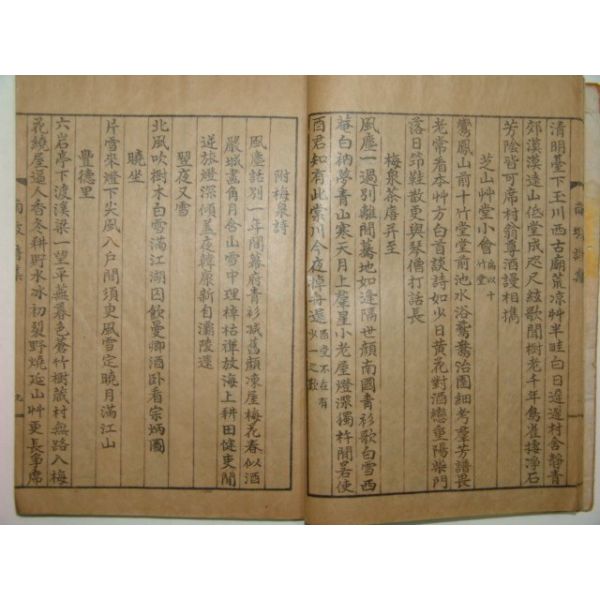 清明臺下玉川西古廟荒凉艸半畦白日遲遲村舍靜青
郊漠漠遠山低堂成咫尺絃歌聞樹老千年鳥雀捿淨石
芳陰皆可席村翁尊酒謾相携
芝山艸堂小會
鸞鳳山前十竹堂堂前池水浴鴛鴦治圃細考羣芳譜畏
老常看本艸方白首談詩如少日黃花對酒戀重陽柴門
落日筇鞋散更與琴僧打話長
梅泉茶唐幷至
風塵一過別離間驀地如逢隔世顔南國青衫歌白雪西
菴白衲夢青山寒天月上羣星小老屋燈深獨杵閒若使
酉君知有此崇川今夜悼無還
附梅泉詩
風塵話別一年間幕府青衫減舊顔凍屋梅花春似酒
嚴城畫角月含山雪中理棹枯禪放海上耕田健吏閒
逆旅燈深傾蓋夜韓康新自灞陵還
翌夜又雪
北風吹樹木白雪滿江湖因飮曼卿酒卧看宗炳圖
曉坐
片雪來燈下尖風入戶間須更風雪定曉月滿江山
豐德里
六岩亭下渡溪梁一望平蕪暮色蒼竹樹藏村無路入梅
花繞屋逼人香冬耕野水冰初裂野燒延山艸更長爭席